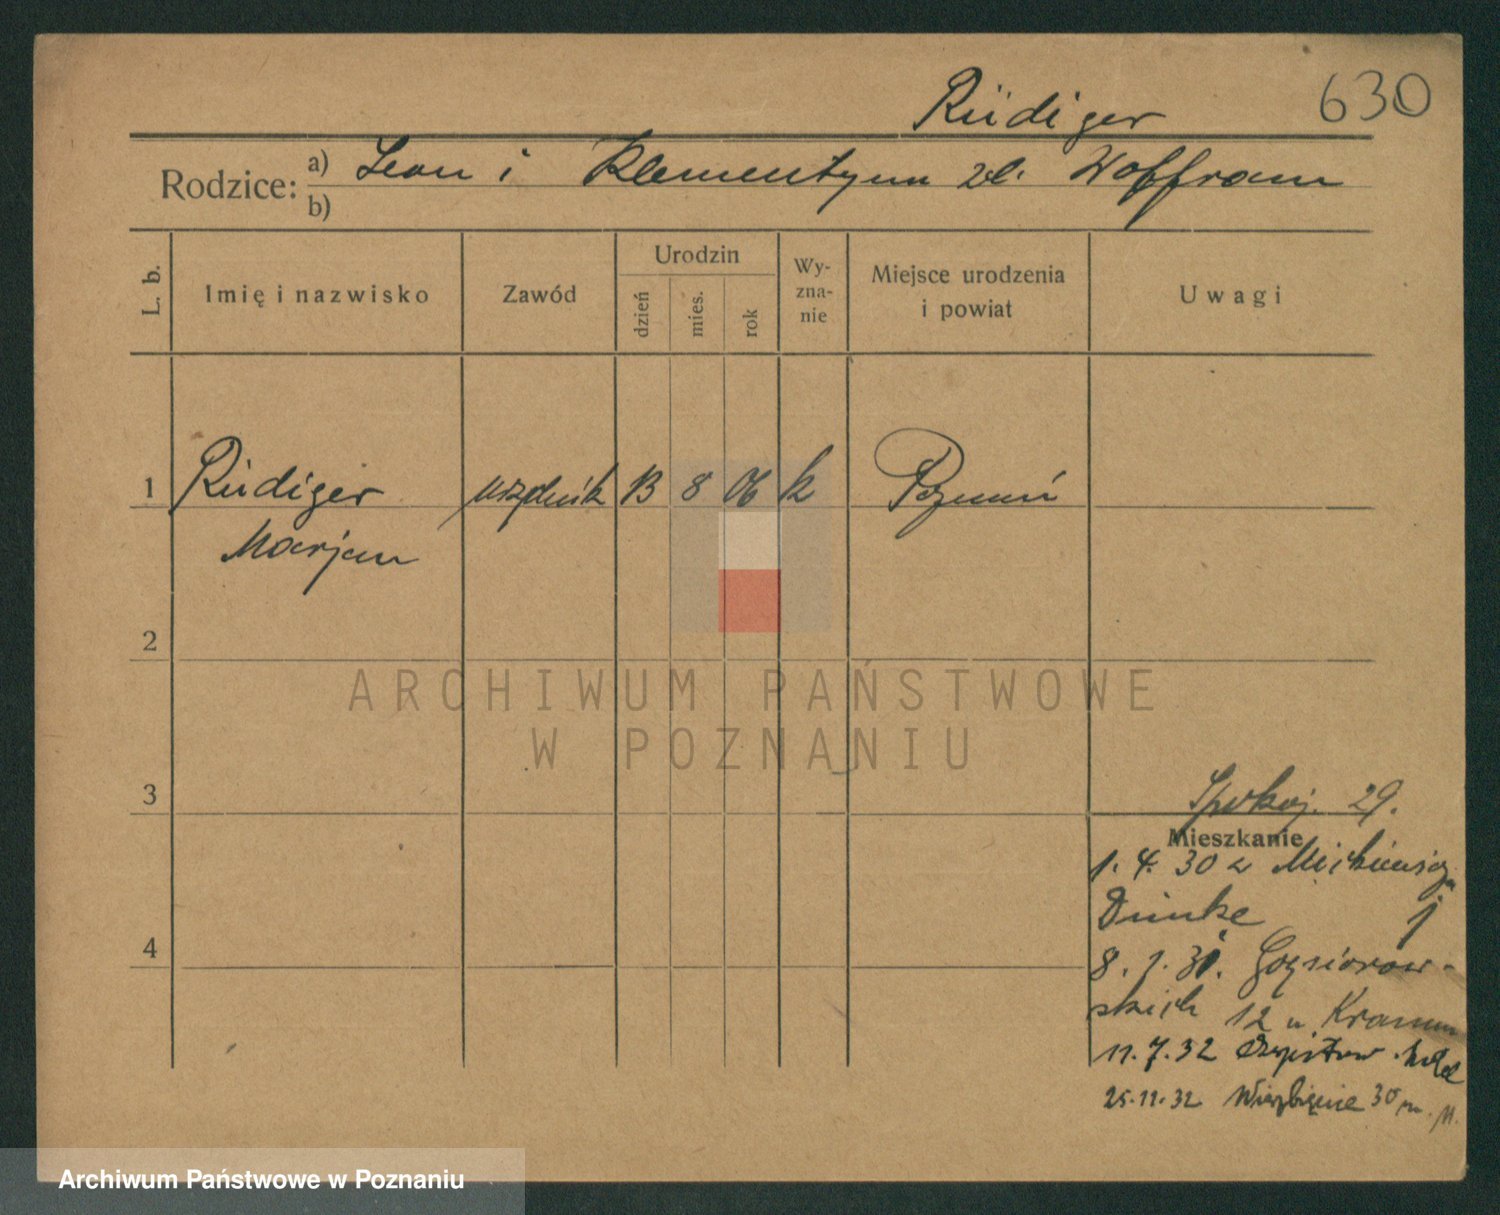 Rüdiger 630
Rodzice: a) Leon i Klementyna zd. Woffram
b)
L. b. Imię i nazwisko Zawód Urodzin dzień mies. rok Wy-zna-nie Miejsce urodzenia i powiat Uwagi
1 Rüdiger urzędnik 13 8 06 k Poznań
Marjan
2
ARCHIWUM PAŃSTWOWE
W POZNANIU
3
Spokoj. 29.
Mieszkanie
1. 4. 30
4
8. 1. 31. Gąsiorow-
skich 12 u
11. 7. 32
25. 11. 32 Wierzbięcice 30 m. 11.
Archiwum Państwowe w Poznaniu